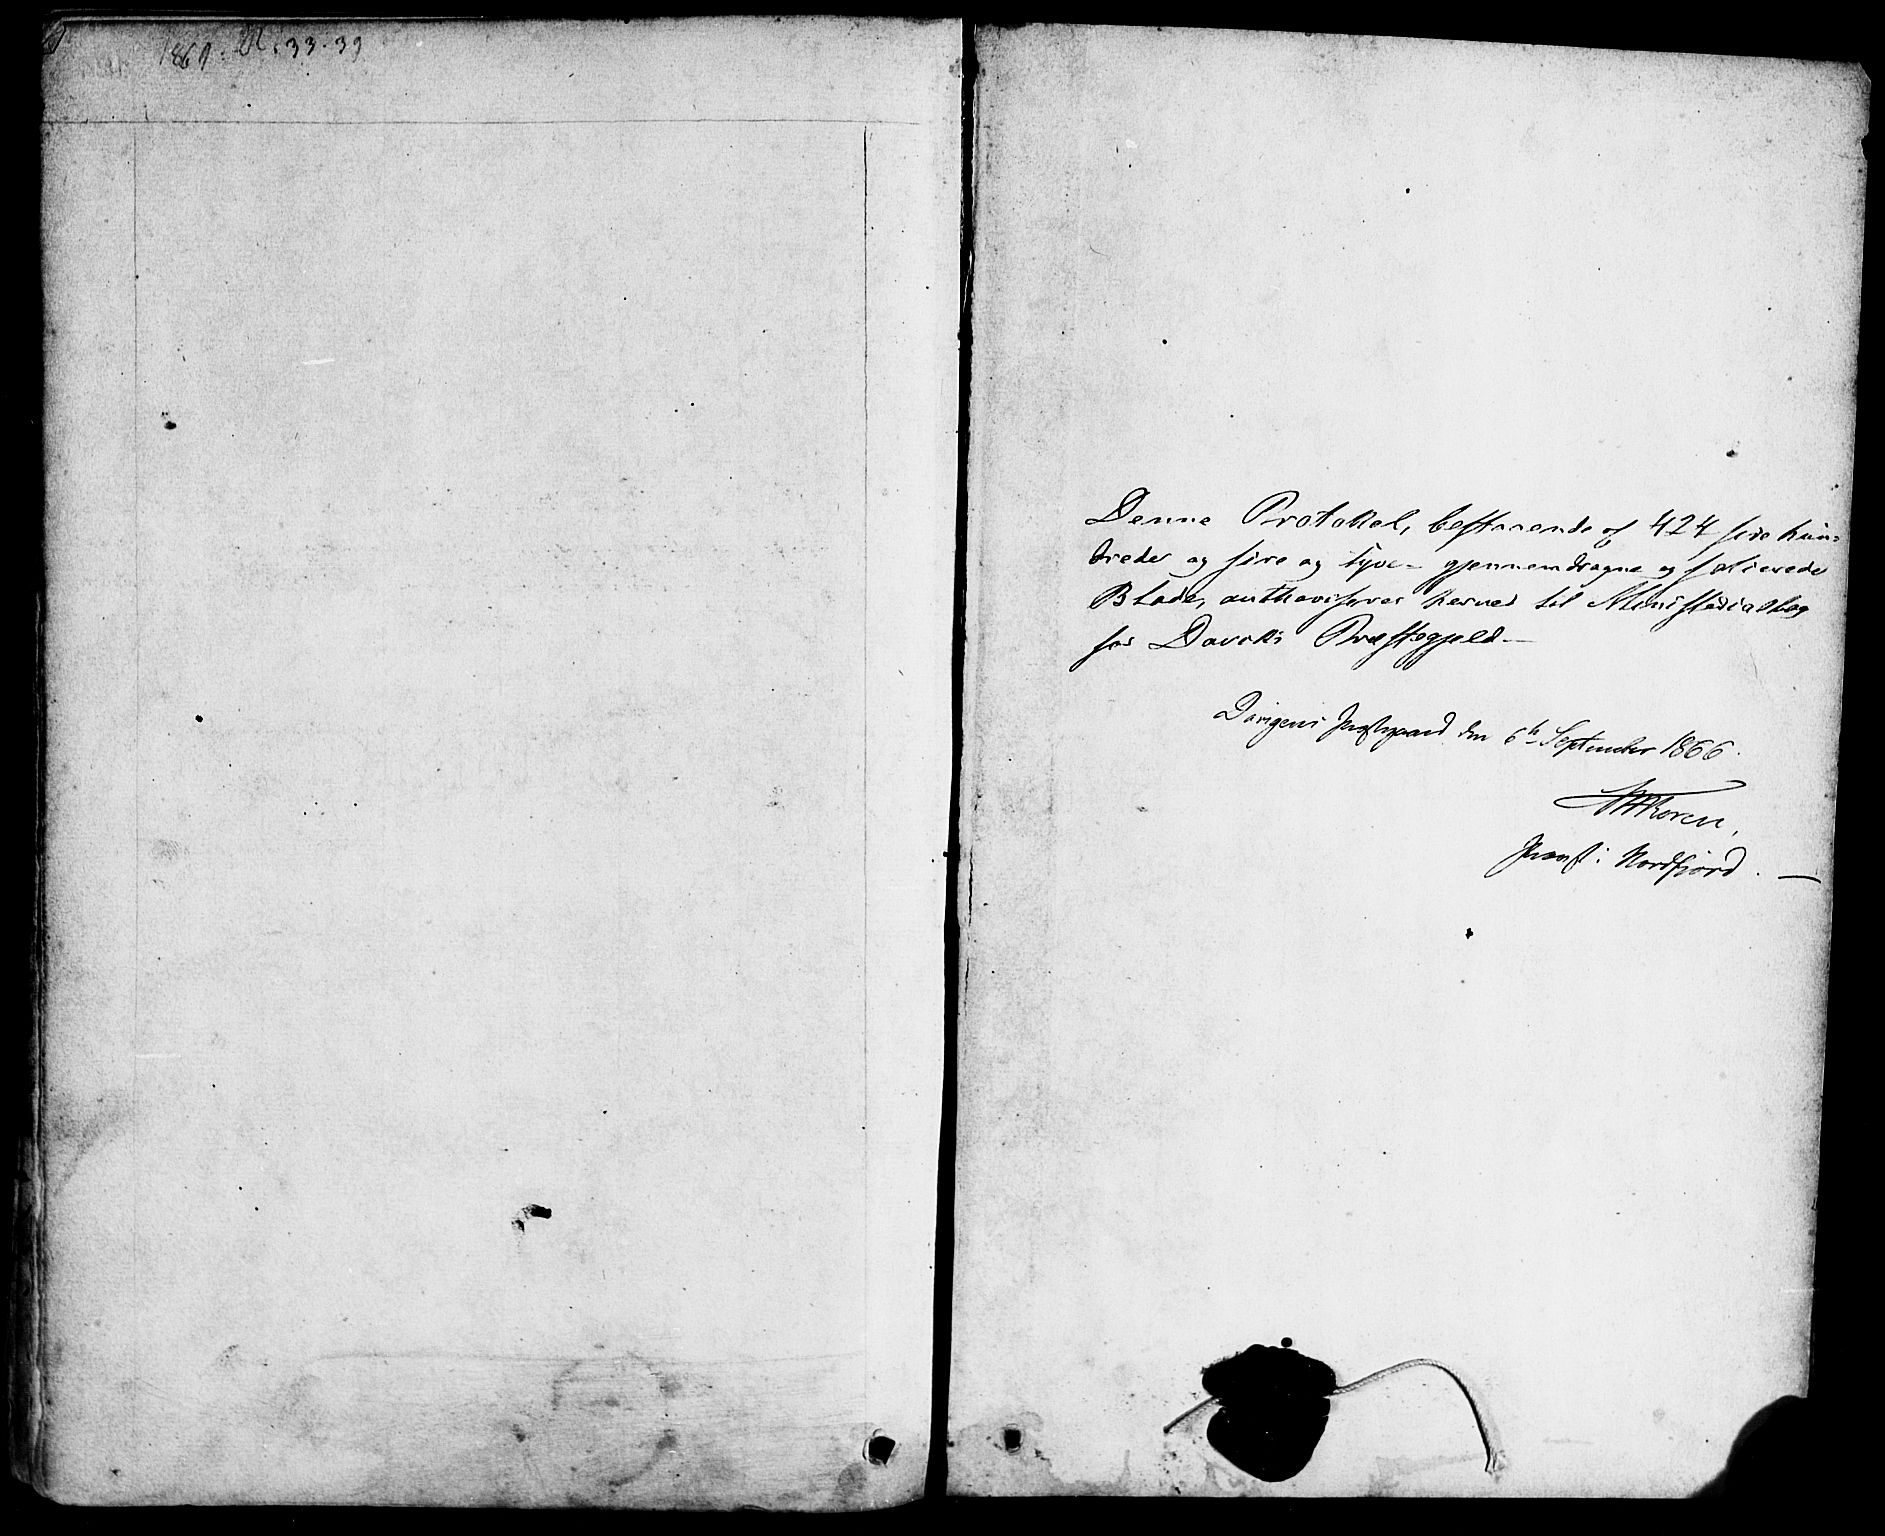 Denne Protokol, bestaaende af 424 fire hun-
drede og fire og tyve – gjennemdragne og folierede
Blade, authoriseres herved til Ministerialbog
for Davoks Præstegjeld. –
Præstgaard den 6te September 1866.
Koren,
Provst i Nordfjord. –